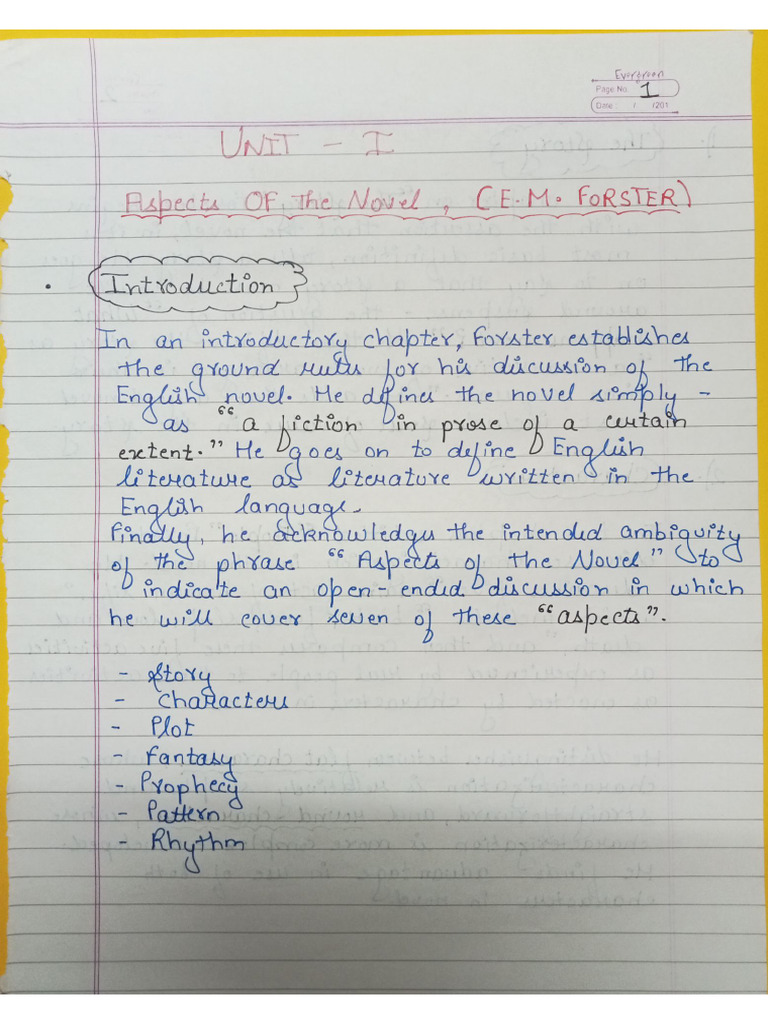 Evergreen
Page No. 1
Date : / /201
UNIT - I
Aspects OF the Novel, (E.M. FORSTER)
Introduction
In an introductory chapter, Forster establishes
the ground rules for his discussion of the
English novel. He defines the novel simply -
as "a fiction in prose of a certain
extent." He goes on to define English
literature as literature written in the
English language.
Finally, he acknowledges the intended ambiguity
of the phrase "Aspects of the Novel" to
indicate an open-ended discussion in which
he will cover seven of these "aspects".
- Story
- Characters
- Plot
- Fantasy
- Prophecy
- Pattern
- Rhythm